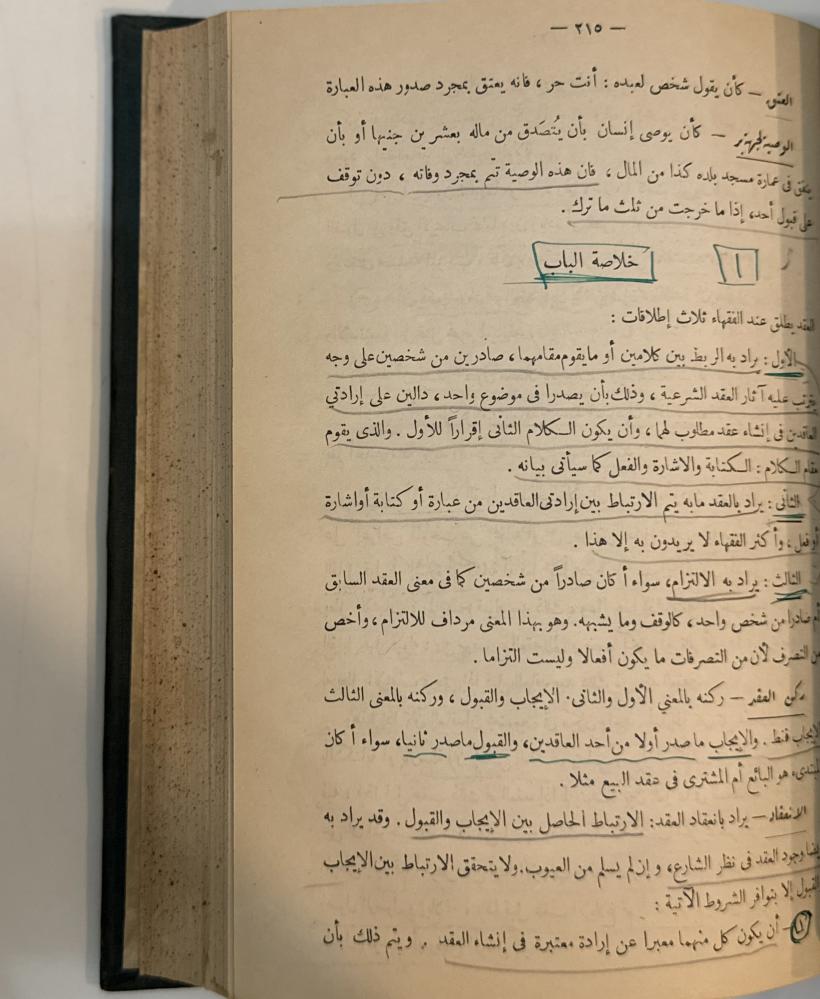 — ٢١٥ —
العتق — كأن يقول شخص لعبده : أنت حر ، فانه يعتق بمجرد صدور هذه العبارة
الوصية لجهة بر — كأن يوصى إنسان بأن يُتصَدق من ماله بعشرين جنيها أو بأن
ينفق فى عمارة مسجد بلده كذا من المال ، فان هذه الوصية تتم بمجرد وفاته ، دون توقف
على قبول أحد، إذا ما خرجت من ثلث ما ترك .
١ خلاصة الباب
العقد يطلق عند الفقهاء ثلاث إطلاقات :
الأول : يراد به الربط بين كلامين أو مايقوم مقامهما ، صادرين من شخصين على وجه
يترتب عليه آثار العقد الشرعية ، وذلك بأن يصدرا فى موضوع واحد ، دالين على إرادتي
العاقدين فى إنشاء عقد مطلوب لهما ، وأن يكون الكلام الثانى إقراراً للأول . والذى يقوم
مقام الكلام : الكتابة والاشارة والفعل كما سيأتى بيانه .
الثانى : يراد بالعقد مابه يتم الارتباط بين إرادتى العاقدين من عبارة أو كتابة أواشارة
أو فعل ، وأكثر الفقهاء لا يريدون به إلا هذا .
الثالث : يراد به الالتزام، سواء أكان صادراً من شخصين كما فى معنى العقد السابق
أم صادرا من شخص واحد ، كالوقف وما يشبهه. وهو بهذا المعنى مرداف للالتزام ، وأخص
من التصرف لأن من التصرفات ما يكون أفعالا وليست التزاما .
ركن العقد — ركنه بالمعني الأول والثانى . الإيجاب والقبول ، وركنه بالمعنى الثالث
الإيجاب فقط . والإيجاب ما صدر أولا من أحد العاقدين، والقبول ماصدر ثانيا، سواء أكان
المبتدى، هو البائع أم المشترى فى عقد البيع مثلا .
الانعقاد — يراد بانعقاد العقد: الارتباط الحاصل بين الإيجاب والقبول . وقد يراد به
أيضا وجود العقد فى نظر الشارع، و إن لم يسلم من العيوب. ولا يتحقق الارتباط بين الإيجاب
والقبول إلا بتوافر الشروط الآتية :
(١) — أن يكون كل منهما معبرا عن إرادة معتبرة فى إنشاء العقد . ويتم ذلك بأن